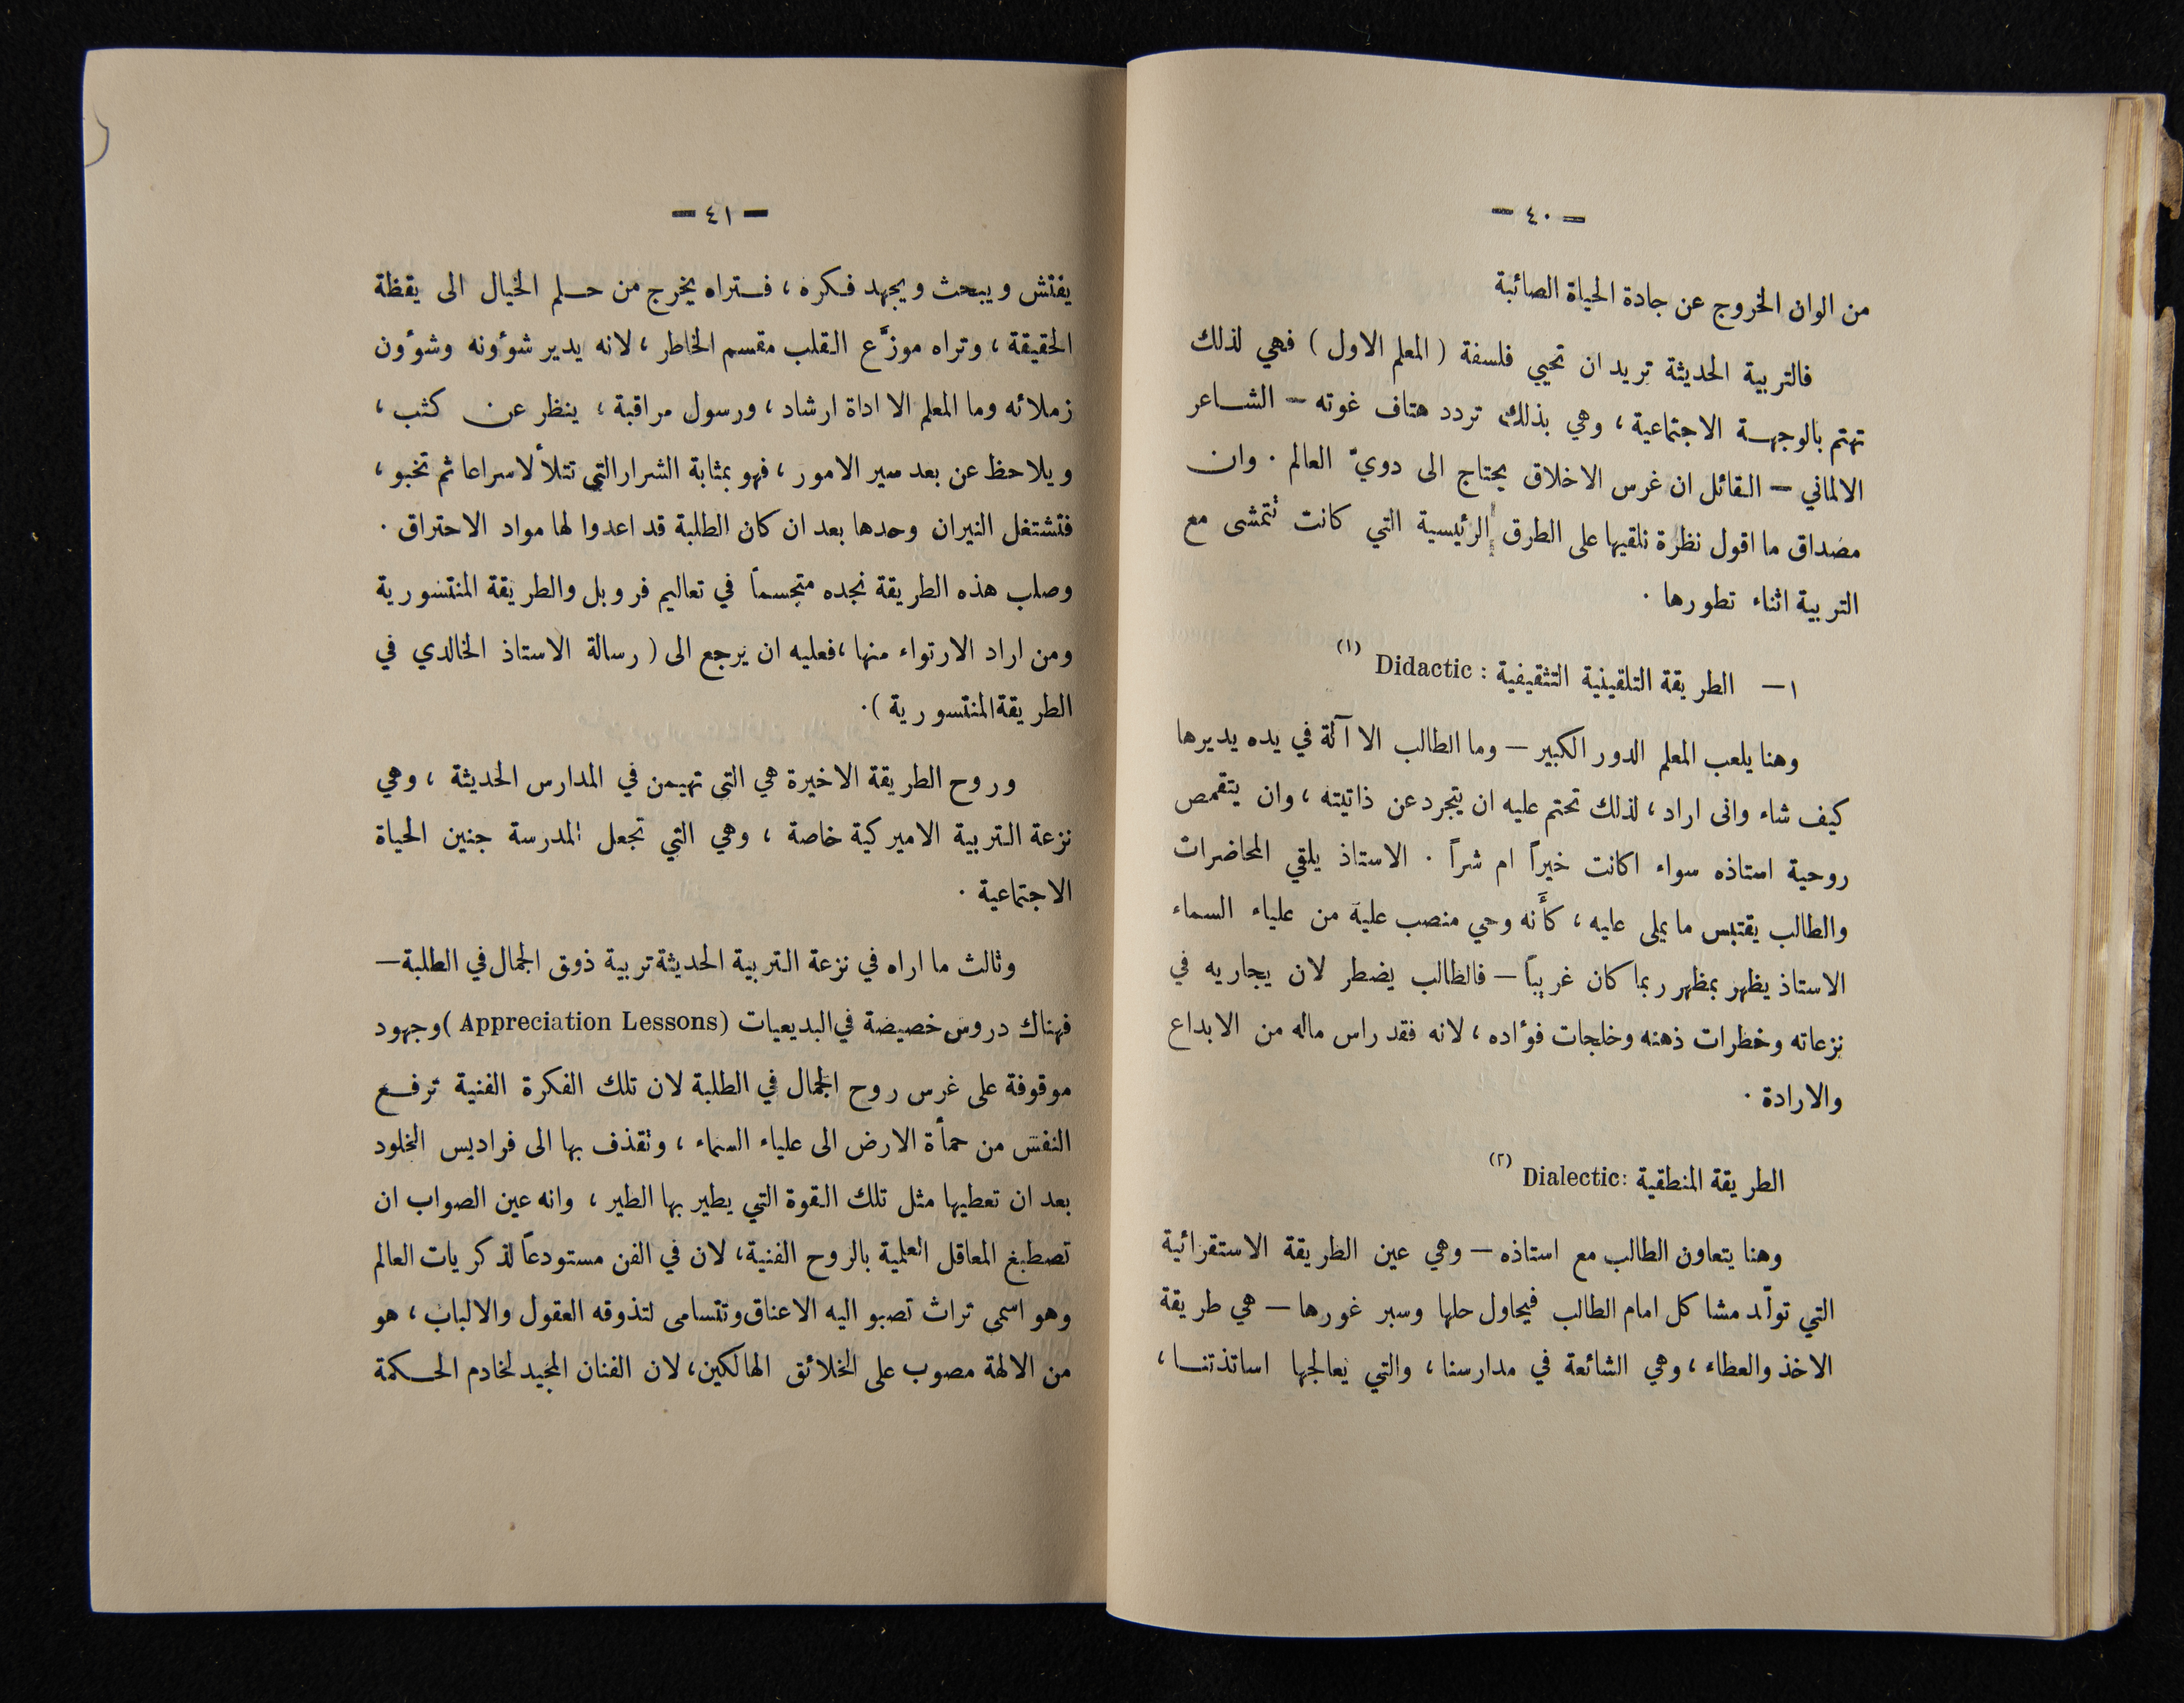 — ٤٠ —
من الوان الخروج عن جادة الحياة الصائبة
فالتربية الحديثة تريد ان تحيي فلسفة ( المعلم الاول ) فهي لذلك
تهتم بالوجهة الاجتماعية ، وهي بذلك تردد هتاف غوته — الشاعر
الالماني — القائل ان غرس الاخلاق يحتاج الى دويّ العالم . وان
مصداق ما اقول نظرة نلقيها على الطرق الرئيسية التي كانت تتمشى مع
التربية اثناء تطورها .
١ — الطريقة التلقينية التثقيفية : Didactic (١)
وهنا يلعب المعلم الدور الكبير — وما الطالب الا آلة في يده يديرها
كيف شاء وانى اراد ، لذلك تحتم عليه ان يتجرد عن ذاتيته ، وان يتقمص
روحية استاذه سواء اكانت خيراً ام شراً . الاستاذ يلقي المحاضرات
والطالب يقتبس ما يملى عليه ، كأَنه وحي منصب علية من علياء السماء
الاستاذ يظهر بمظهر ربما كان غريباً — فالطالب يضطر لان يجاريه في
نزعاته وخطرات ذهنه وخلجات فؤاده ، لانه فقد راس ماله من الابداع
والارادة .
الطريقة المنطقية : Dialectic (٢)
وهنا يتعاون الطالب مع استاذه — وهي عين الطريقة الاستقرائية
التي تولّد مشاكل امام الطالب فيحاول حلها وسبر غورها — هي طريقة
الاخذ والعطاء ، وهي الشائعة في مدارسنا ، والتي يعالجها اساتذتنا ،
— ٤١ —
يفتش ويبحث ويجهد فكره ، فتراه يخرج من حلم الخيال الى يقظة
الحقيقة ، وتراه موزَّع القلب مقسم الخاطر ، لانه يدير شؤونه وشؤون
زملائه وما المعلم الا اداة ارشاد ، ورسول مراقبة ، ينظر عن كثب ،
ويلاحظ عن بعد سير الامور ، فهو بمثابة الشرار التي تتلألا سراعا ثم تخبو ،
فتشتغل النيران وحدها بعد ان كان الطلبة قد اعدوا لها مواد الاحتراق .
وصلب هذه الطريقة نجده متجسماً في تعاليم فروبل والطريقة المنتسورية
ومن اراد الارتواء منها ، فعليه ان يرجع الى ( رسالة الاستاذ الخالدي في
الطريقة المنتسورية ) .
وروح الطريقة الاخيرة هي التي تهيمن في المدارس الحديثة ، وهي
نزعة التربية الاميركية خاصة ، وهي التي تجعل المدرسة جنين الحياة
الاجتماعية .
وثالث ما اراه في نزعة التربية الحديثة تربية ذوق الجمال في الطلبة —
فهناك دروس خصيصة في البديعيات (Appreciation Lessons) وجهود
موقوفة على غرس روح الجمال في الطلبة لان تلك الفكرة الفنية ترفع
النفس من حمأة الارض الى علياء السماء ، وتقذف بها الى فراديس الخلود
بعد ان تعطيها مثل تلك القوة التي يطير بها الطير ، وانه عين الصواب ان
تصطبغ المعاقل العلمية بالروح الفنية ، لان في الفن مستودعاً لذكريات العالم
وهو اسمى تراث تصبو اليه الاعناق وتتسامى لتذوقه العقول والالباب ، هو
من الالهة مصوب على الخلائق الهالكين ، لان الفنان المجيد لخادم الحكمة